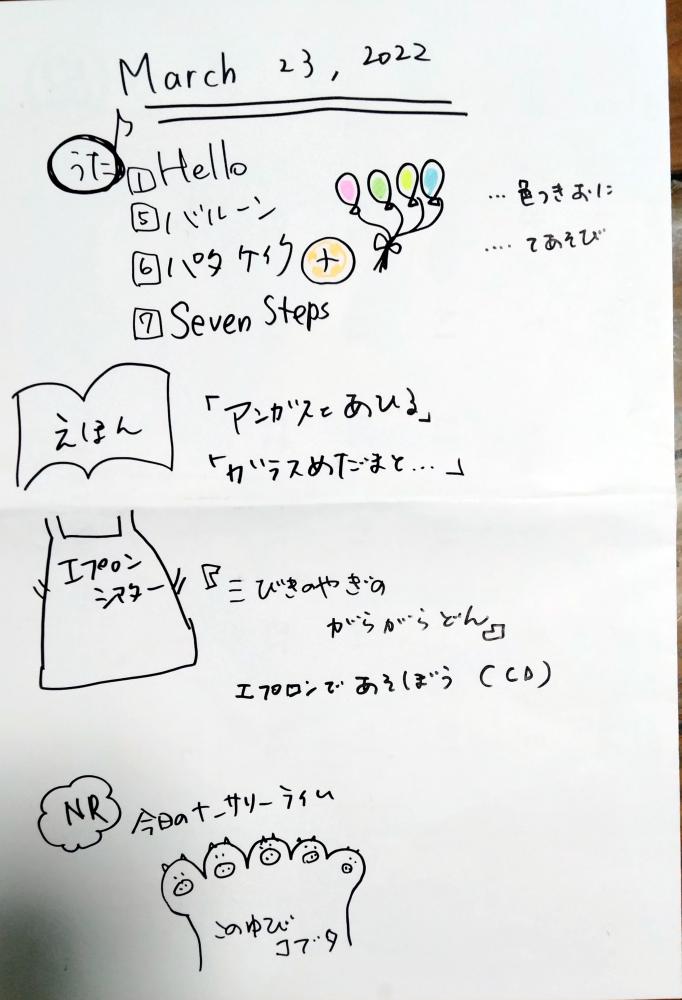 March 23, 2022
うた
1 Hello
5 バルーン
…色つきおに
6 パタ ケイク +
…. てあそび
7 Seven Steps
えほん
「アンガスとあひる」
「ガラスめだまと…」
エプロン
シアター
『三びきのやぎの
がらがらどん』
エプロンであそぼう (CD)
NR
今日のナーサリーライム
このゆび
コブタ